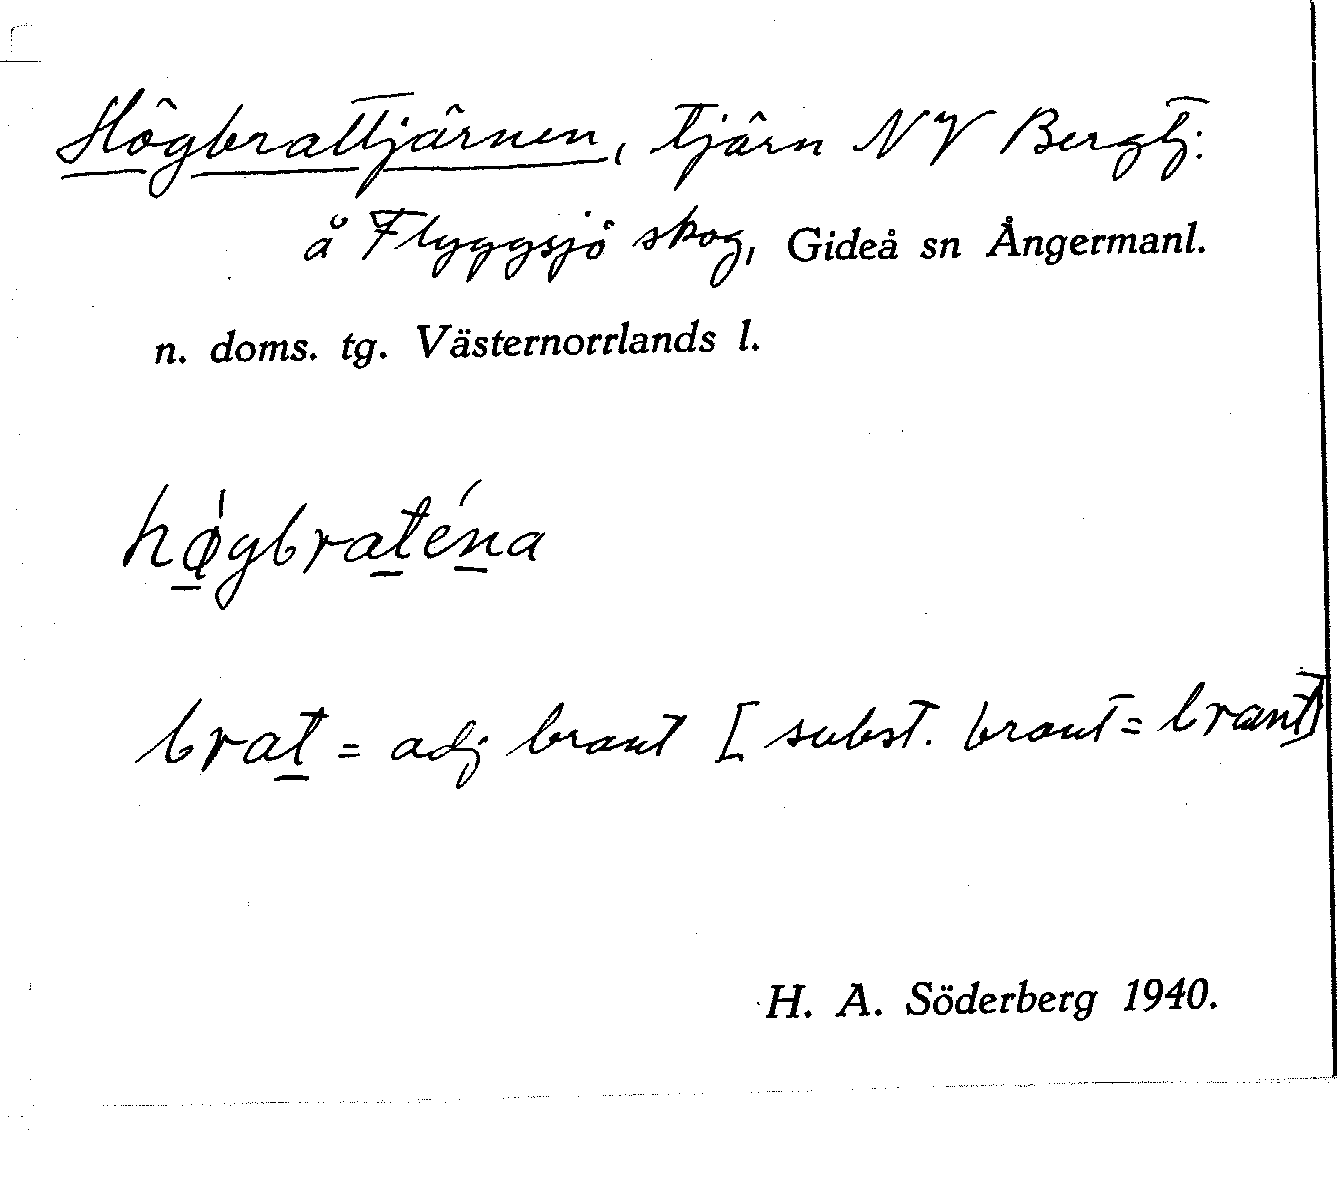 Högbrattjärnen, tjärn NV Bergtj:
å Flyggsjö skog, Gideå sn Ångermanl.
n. doms. tg. Västernorrlands l.
hø̱̀gbraṯéṉa
braṯ = adj brant [subst. brant = brant]
H. A. Söderberg 1940.